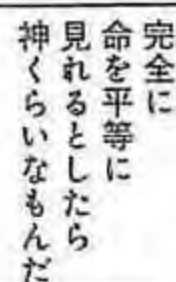 完全に
命を平等に
見れるとしたら
神くらいなもんだ